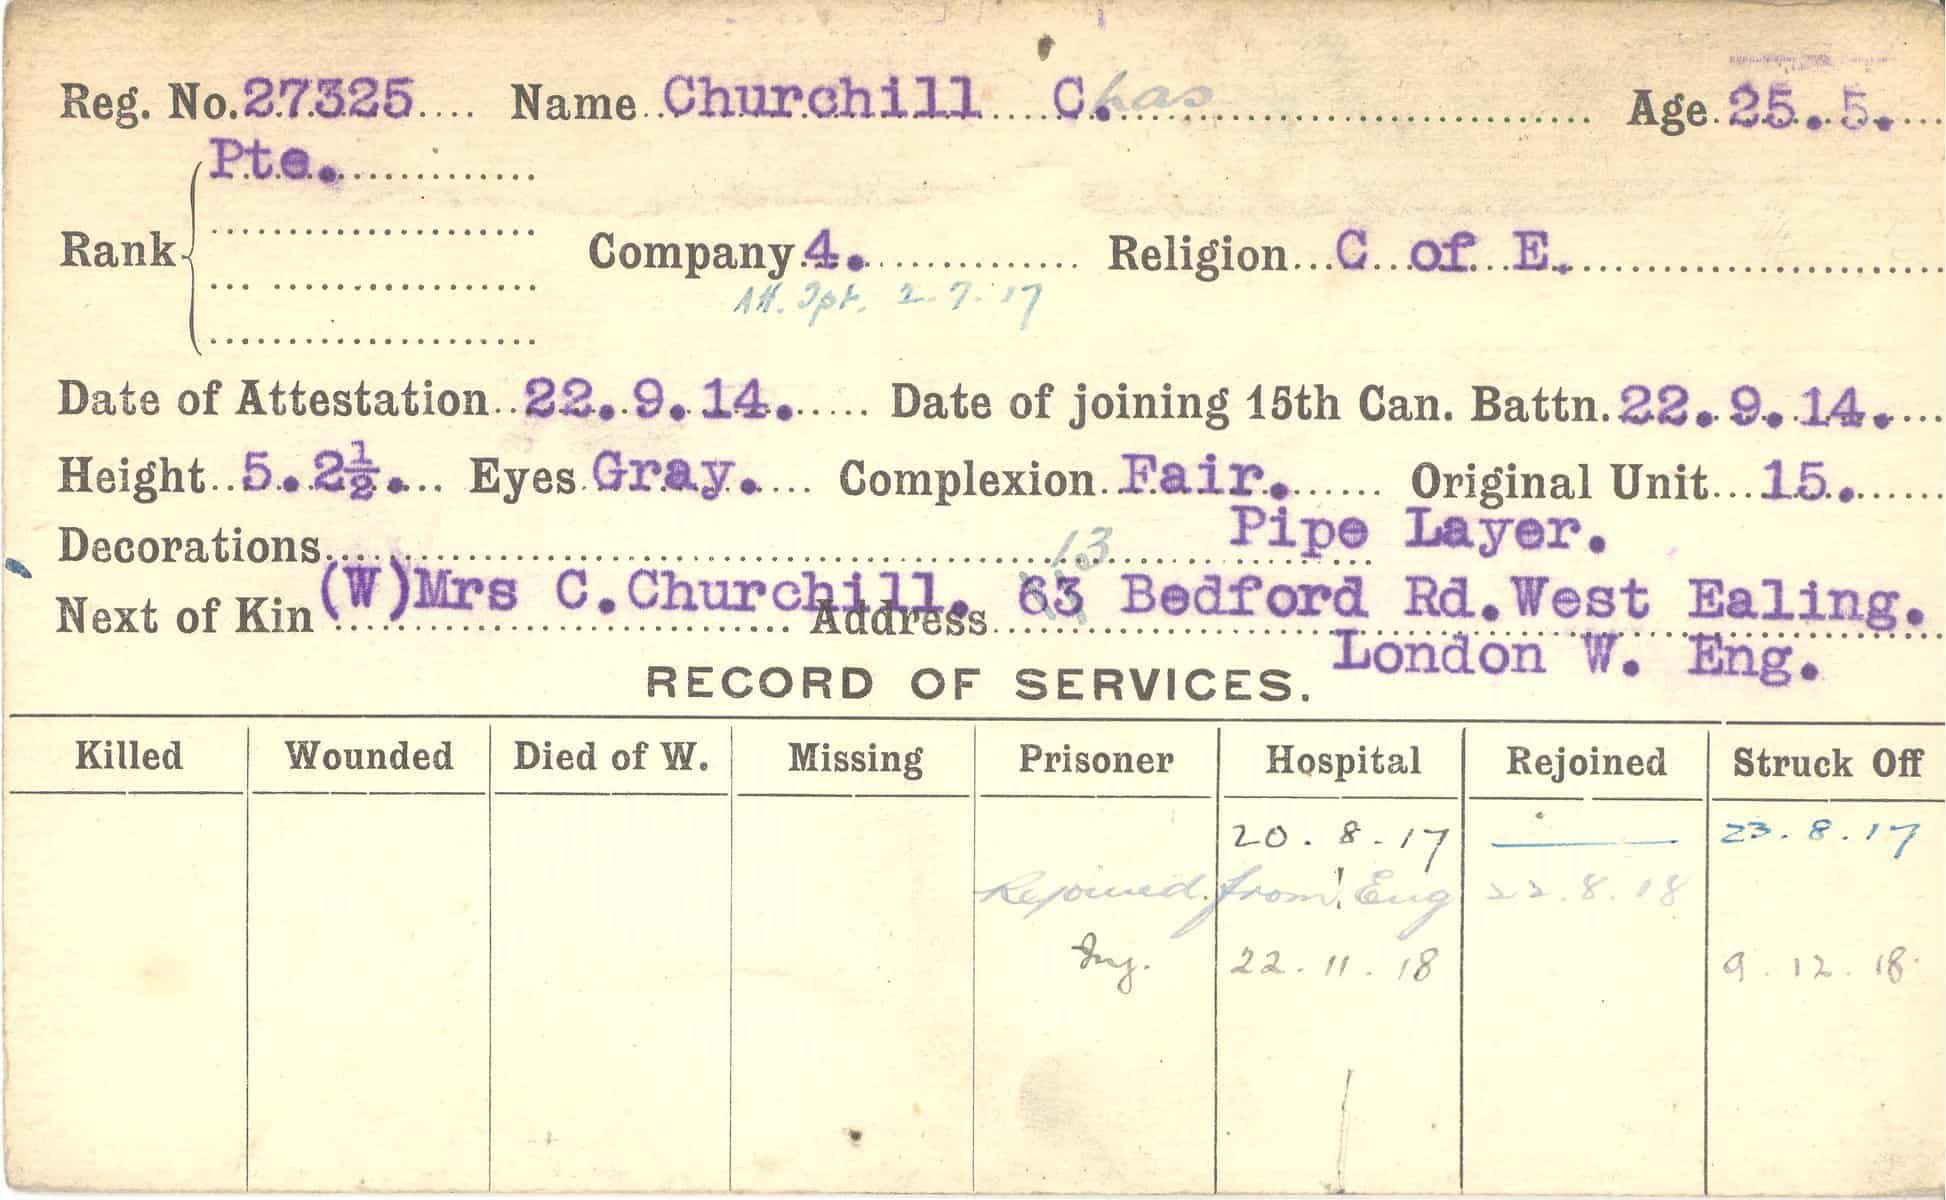 Reg. No. 27325 Name Churchill C.has Age 25. 5.
Pte.
Rank Company 4. Religion C of E.
Att. Tpt. 2.7.17
Date of Attestation 22.9.14. Date of joining 15th Can. Battn. 22.9.14.
Height 5.2½. Eyes Gray. Complexion Fair. Original Unit 15.
Decorations Pipe Layer.
13
Next of Kin (W)Mrs C.Churchill. Address 63 Bedford Rd.West Ealing.
London W. Eng.
RECORD OF SERVICES.
Killed Wounded Died of W. Missing Prisoner Hospital Rejoined Struck Off
20.8.17 23.8.17
Rejoined from Eng 22.8.18
22.11.18 9.12.18